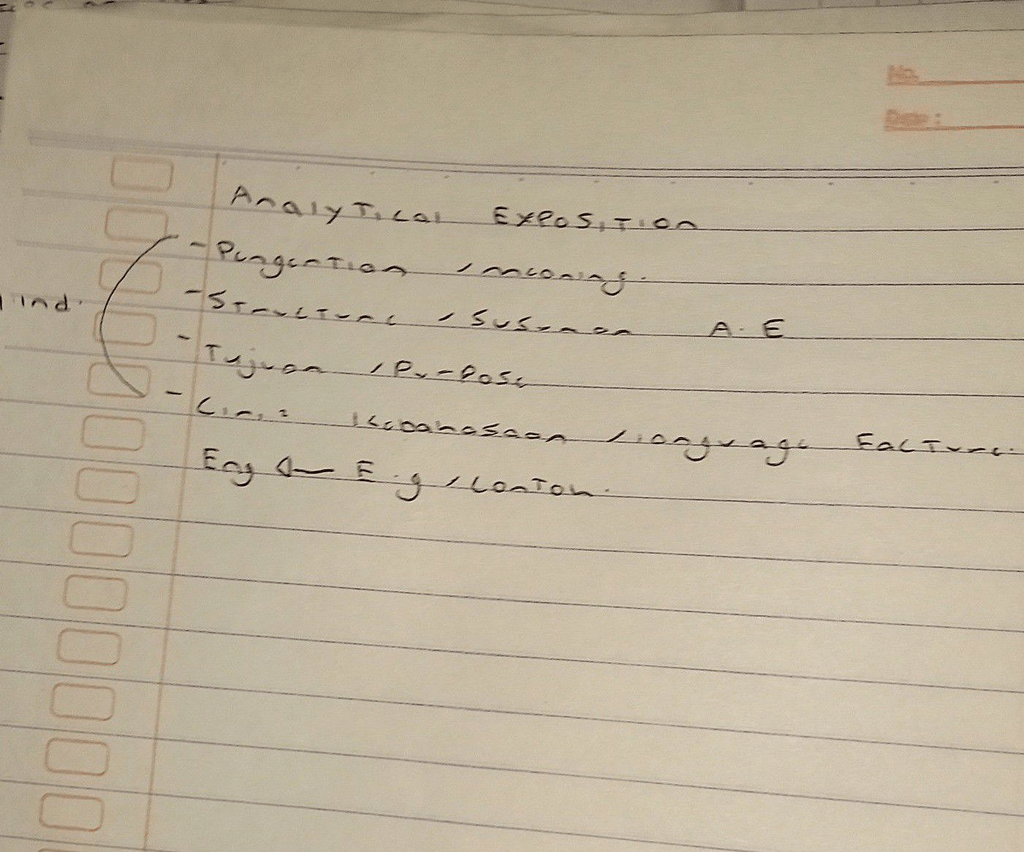 No.
Date :
Analytical Exposition
- Pengertian / meaning.
- Structure / Susunan A. E
ind.
- Tujuan / Purpose
- Ciri2 Kebahasaan / language Facture.
Eng ← E.g / Contoh.